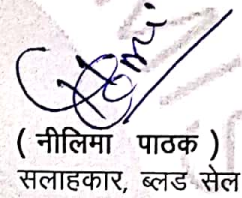 ( नीलिमा पाठक )
सलाहकार, ब्लड सेल